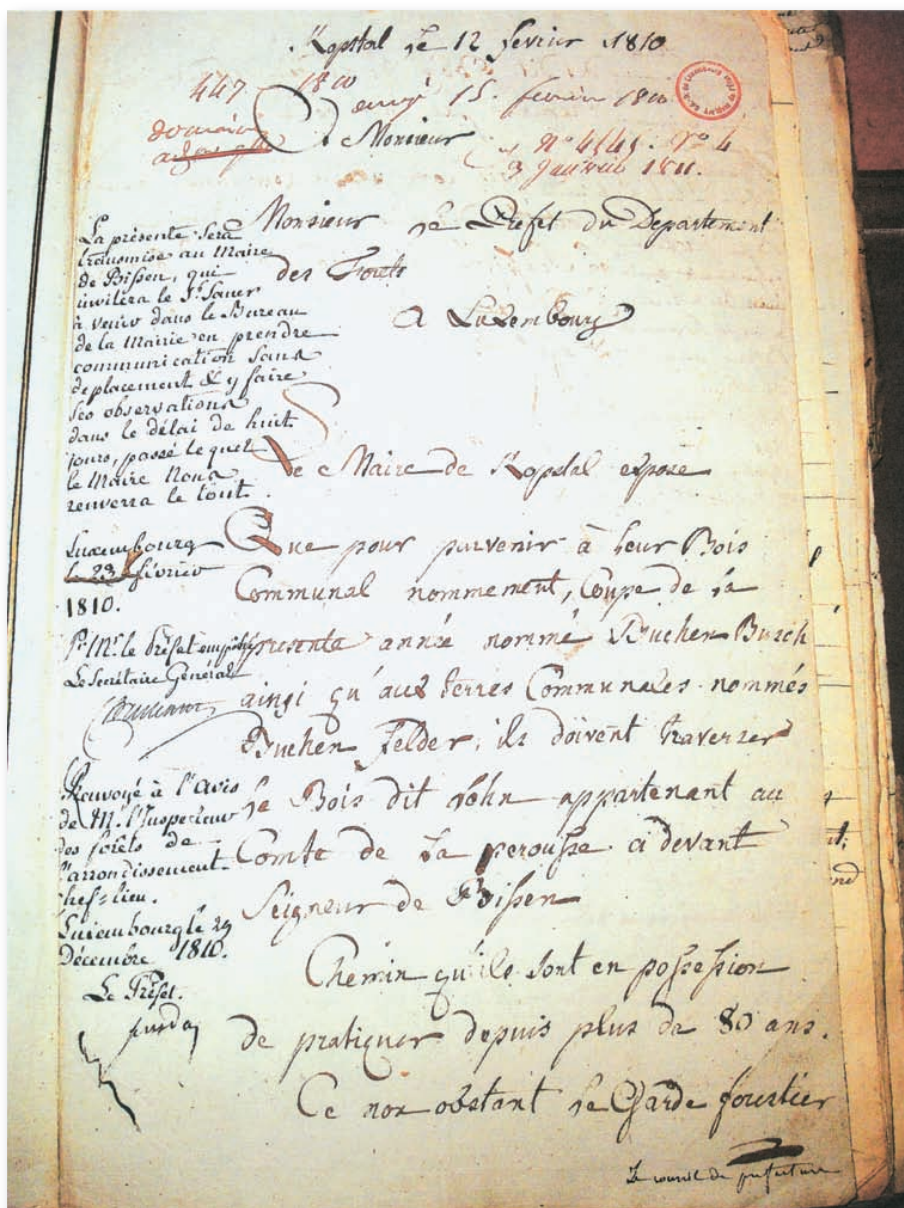 Kopstal le 12 fevrier 1810
447 1810
15. fevrier 1810
domaine
Monsieur
N° 4541. N° 4
3 Janvier 1811.
Monsieur le Prefet du Departement
des Forets
A Luxembourg
Le Maire de Kopstal expose
Que pour parvenir à leur Bois
Communal nommement, Coupe de la
presente année nommé Buchen Busch
aingi qu'aux terres Communales nommés
Buchen felder, ils doivent traverser
le Bois dit Löhn appartenant au
Comte de La perousse ci devant
Seigneur de Bissen
Chemin qu'ils sont en possession
de pratiquer depuis plus de 80 ans.
Ce non obstant le Garde fourtier
Le conseil de prefecture
La présente sera
transmise au Maire
de Bissen, qui
invitera le Sr. Saner
à venir dans le Bureau
de la Mairie en prendre
communication sans
deplacement & y faire
ses observations
dans le délai de huit
jours, passé lequel
le Maire Nous
renverra le tout.
Luxembourg
le 23 février
1810.
Pr. Mr. le Préfet empêché
Le Secrétaire Général
Renvoyé à l'avis
de Mr. l'Inspecteur
des forêts de
l'arrondissement
chef=lieu.
Luxembourg le 29
Décembre 1810.
Le Préfet.